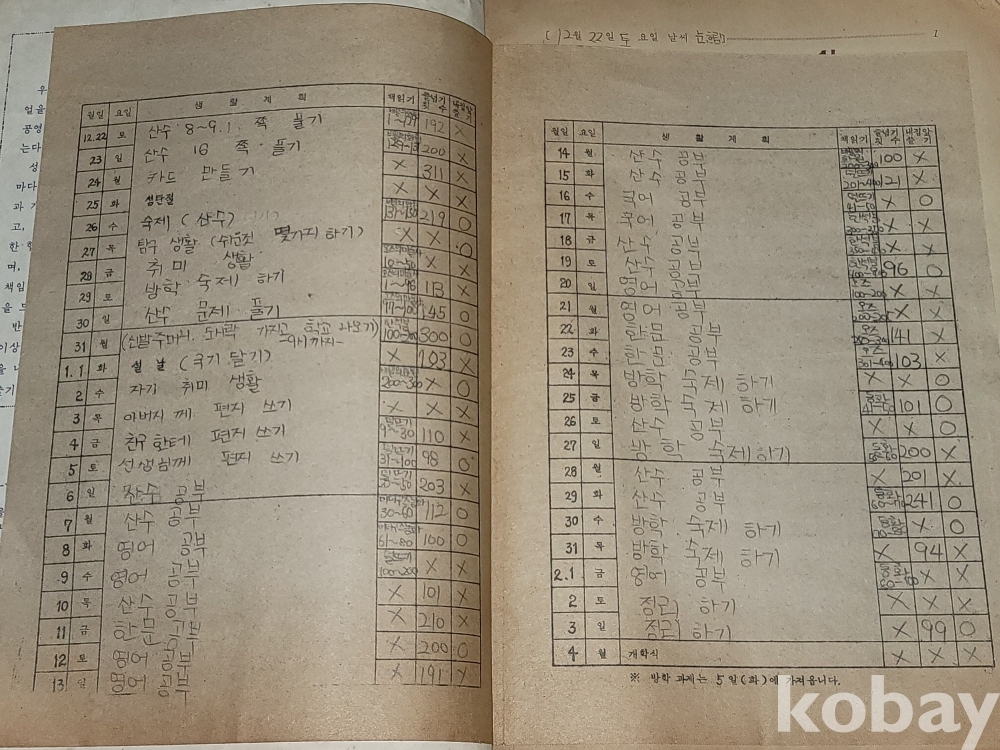 우
얼을
공영
는다
성
마다
과 기
고,
한 현
며,
책임
을 드
반
이상
월일 요일 생활계획 책읽기 줄넘기 횟수 내집앞 쓸기
12.22 토 산수 8~9.1. 쪽 풀기 192 X
23 일 산수 16 쪽 풀기 200 X
24 월 카드 만들기 X 311 X
25 화 성탄절 X X X
26 수 숙제 (산수) 219 O
27 목 탐구 생활 (쉬운것 몇가지 하기) X X O
28 금 취미 생활 X X
29 토 방학 숙제 하기 113 X
30 일 산수 문제 풀기 145 O
31 월 (신발주머니, 도시락 가지고 학교 나오기) 300 O
9시까지-
1.1 화 설날 (국기 달기) X 103 X
2 수 자기 취미 생활 200~300 X O
3 목 아버지께 편지 쓰기 X X X
4 금 친구한테 편지 쓰기 9~30 110 X
5 토 선생님께 편지 쓰기 31~100 98 O
6 일 산수 공부 203 X
7 월 산수 공부 30~60 112 O
8 화 영어 공부 61~80 100 O
9 수 영어 공부 100~200 X X
10 목 산수 공부 X 101 X
11 금 한문 공부 X 210 X
12 토 영어 공부 X 200 O
13 일 영어 공부 X 191 X
[ ]12월 22일 토 요일 날씨 1
월일 요일 생활계획 책읽기 줄넘기 횟수 내집앞 쓸기
14 월 산수 공부 100 X
15 화 산수 공부 121 X
16 수 국어 공부 X O
17 목 국어 공부 X X
18 금 산수 공부 X X
19 토 산수 공부 96 O
20 일 영어 공부 X X
21 월 영어 공부 X X
22 화 한문 공부 141 X
23 수 한문 공부 103 X
24 목 방학 숙제 하기 X X O
25 금 방학 숙제 하기 101 O
26 토 산수 공부 X X O
27 일 방학 숙제 하기 200 X
28 월 산수 공부 X 201 X
29 화 산수 공부 241 O
30 수 방학 숙제 하기 X O
31 목 방학 숙제 하기 X 94 X
2.1 금 영어 공부 X X
2 토 정리 하기 X X X
3 일 정리 하기 X 99 O
4 월 개학식 X X X
※ 방학 과제는 5일(화)에 가져옵니다.
kobay